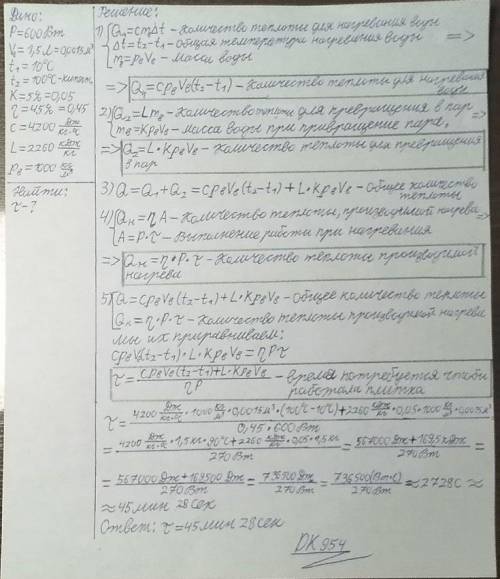 Дано:
P=600Вт
V₁=1,5л=0,0015м³
t₁=10°C
t₂=100°C-кипят.
K=5%=0,05
η=45%=0,45
c=4200 Дж/кг·°C
L=2260 кДж/кг
ρв=1000 кг/м³
Найти:
τ-?
Решение:
1) Q₁=cmΔt - Количество теплоты для нагревания воды
Δt=t₂-t₁ - Общая температура нагревания воды =>
m=ρвVв - Масса воды
=> Q₁=cρвVв(t₂-t₁) - Количество теплоты для нагревания воды
2) Q₂=Lmв - Количество теплоты для превращения в пар
mв=KρвVв - Масса воды при превращение пара, =>
=> Q₂=L·KρвVв - Количество теплоты для превращения
в пар
3) Q=Q₁+Q₂=cρвVв(t₂-t₁)+L·KρвVв - Общее количество теплоты
4) Qн=ηA - Количество теплоты, производимой нагрева =>
A=P·τ - Выполнение работы при нагревания
=> Qн=η·P·τ - Количество теплоты производимой
нагрева
5) Q=cρвVв(t₂-t₁)+L·KρвVв - Общее количество теплоты
Qн=η·P·τ - Количество теплоты производимой нагрева
мы их приравниваем:
cρвVв(t₂-t₁)·L·KρвVв=ηPτ
τ=cρвVв(t₂-t₁)+L·KρвVв/ηP - время потребуется чтобы
работали плитка
τ=4200 Дж/кг·°C·1000 кг/м³·0,0015м³·(100°C-10°C)+2260 кДж/кг·0,05·1000 кг/м³·0,0015м³/0,45·600Вт=
=4200 Дж/кг·°C·1,5кг·90°C+2260 кДж/кг·0,05·1,5кг/270Вт=567000Дж+169,5кДж/270Вт=
=567000Дж+169500Дж/270Вт=736500Дж/270Вт=736500(Вт·с)/270Вт≈2728с≈
≈45мин 28сек
Ответ: τ=45мин 28сек
DK954